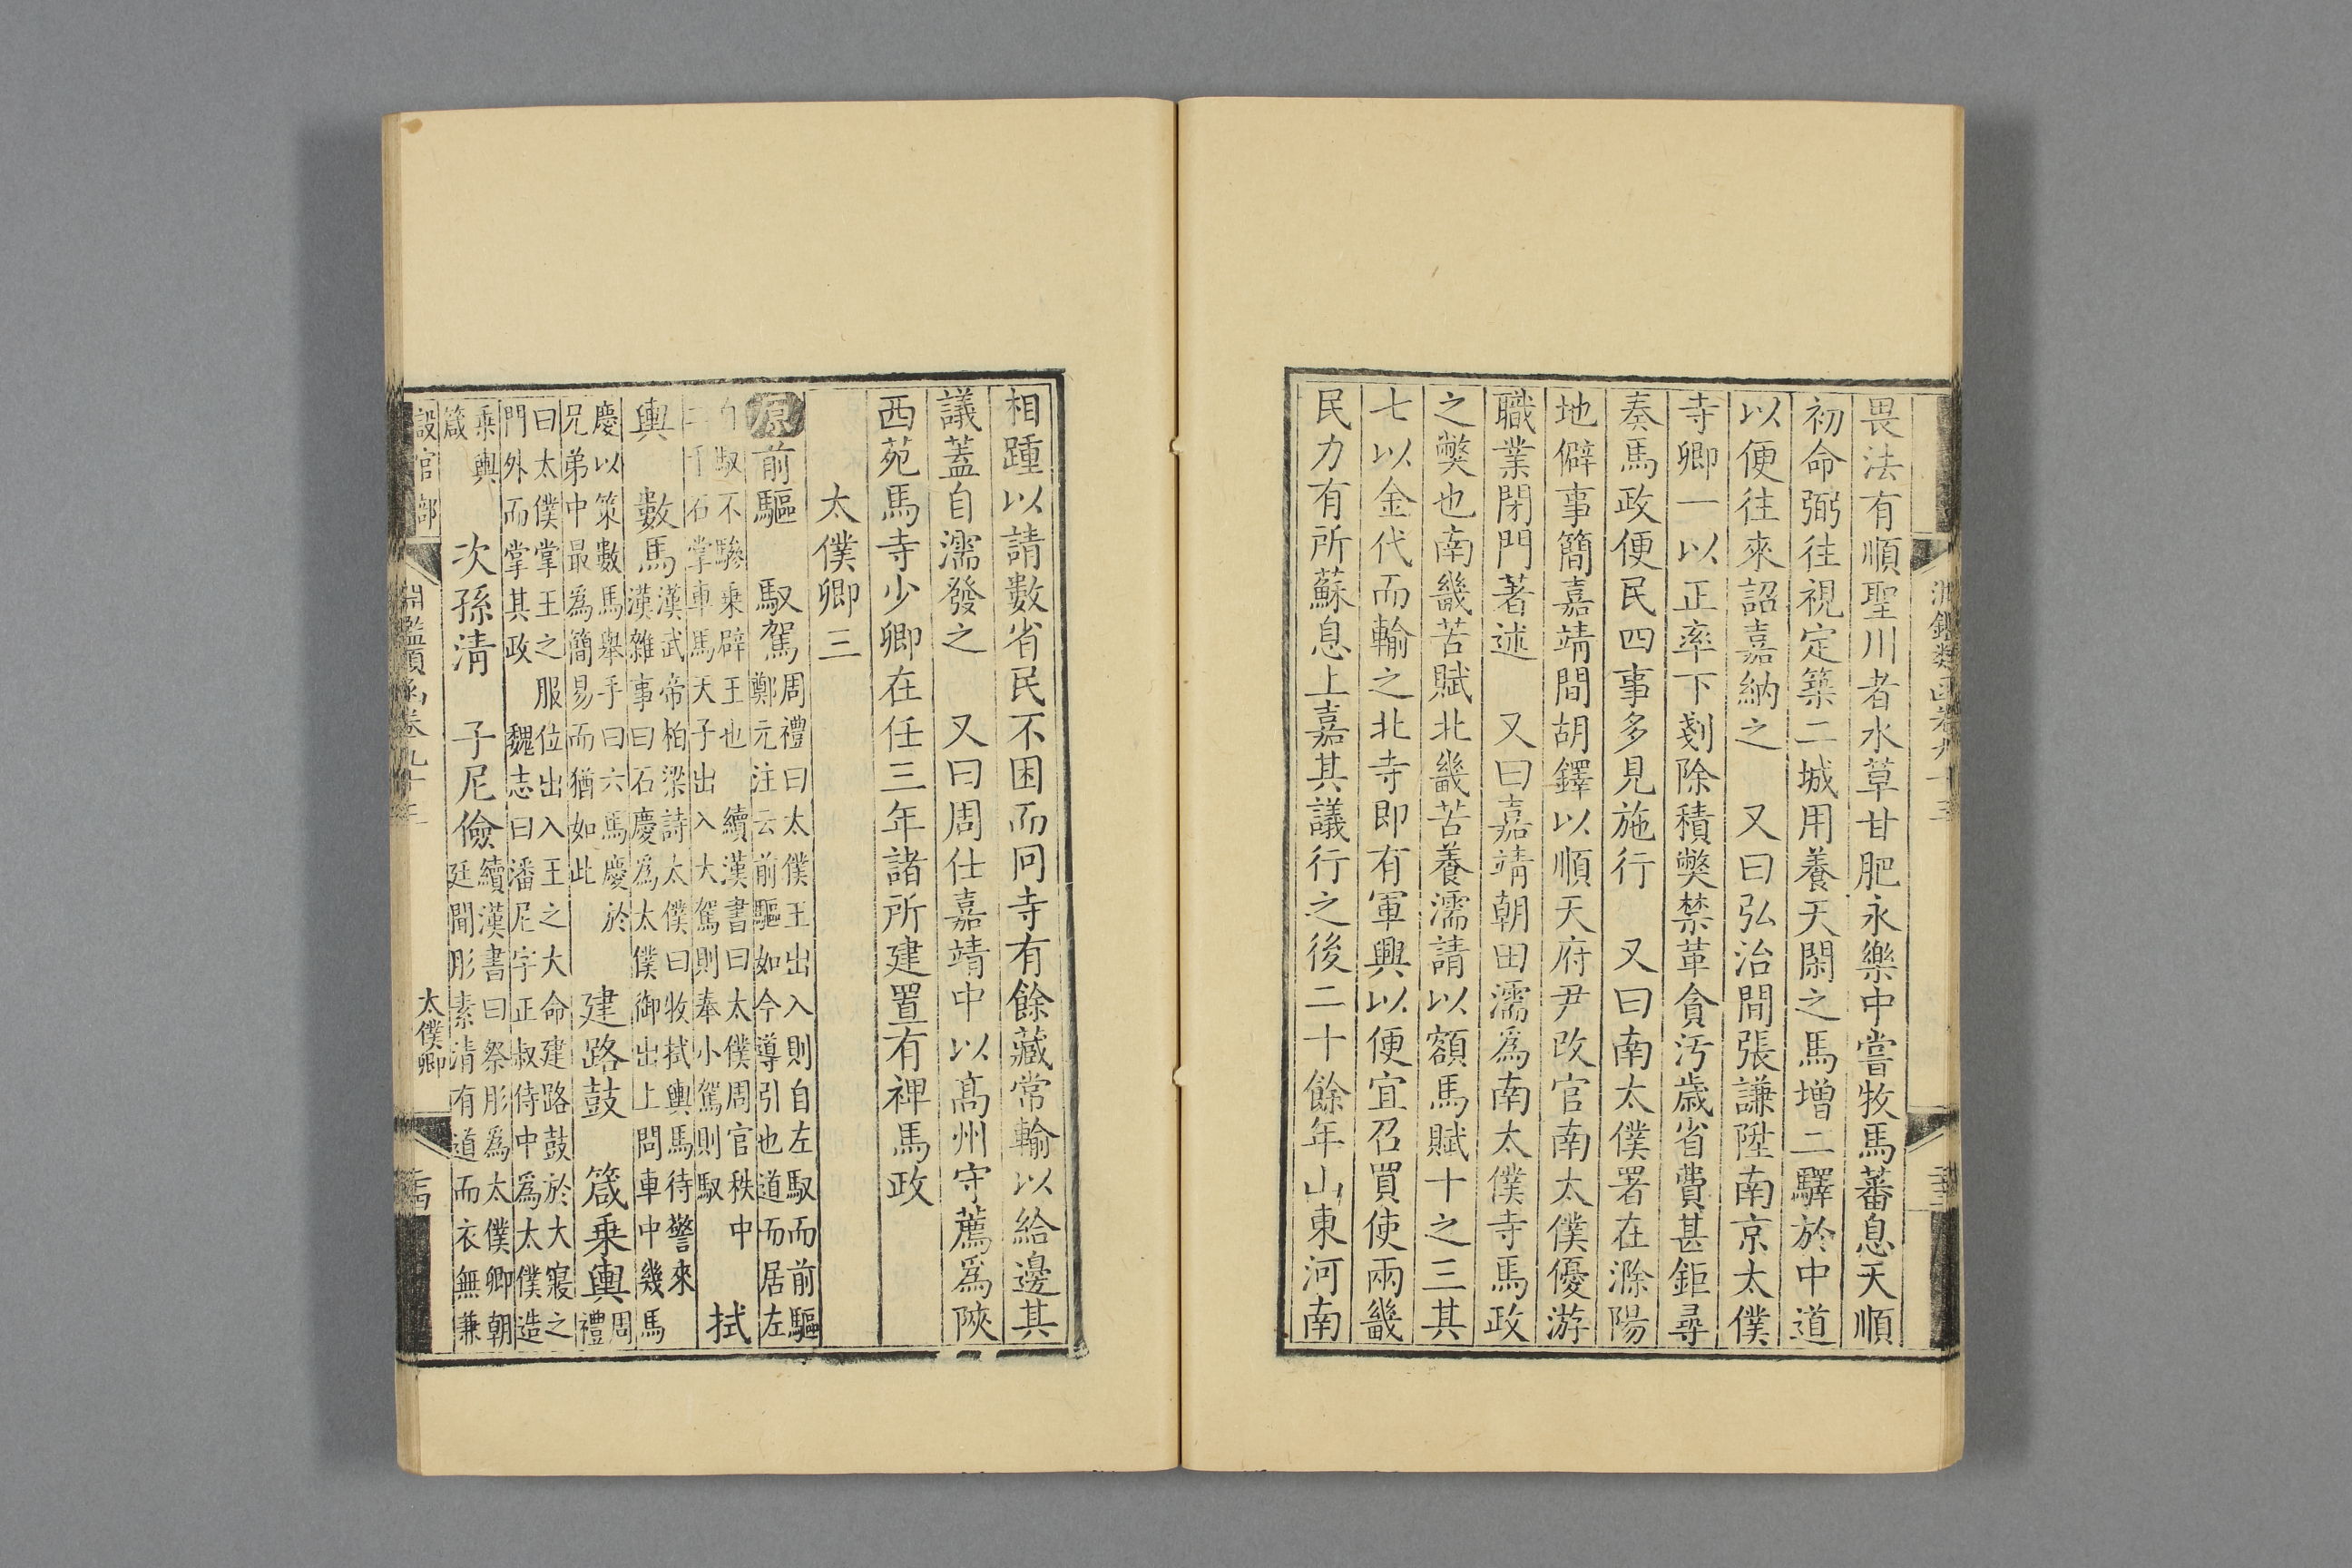 畏法有順聖川者水草甘肥永樂中嘗牧馬蕃息天順
初命弼往視定築二城用養天閑之馬增二驛於中道
以便往來詔嘉納之　又曰弘治間張謙陞南京太僕
寺卿一以正率下剗除積獘禁革貪汚歲省費甚鉅尋
奏馬政便民四事多見施行　又曰南太僕署在滁陽
地僻事簡嘉靖間胡鐸以順天府尹改官南太僕優游
職業閉門著述　又曰嘉靖朝田濡爲南太僕寺馬政
之獘也南畿苦賦北畿苦養濡請以額馬賦十之三其
七以金代而輸之北寺即有軍興以便宜召買使兩畿
民力有所蘇息上嘉其議行之後二十餘年山東河南
相踵以請數省民不困而冏寺有餘藏常輸以給邊其
議蓋自濡發之　又曰周仕嘉靖中以髙州守薦爲陝
西苑馬寺少卿在任三年諸所建置有裨馬政
太僕卿三
原前驅　馭駕周禮曰太僕王出入則自左馭而前驅
鄭元注云前驅如今導引也道而居左
自馭不驂乘辟王也　續漢書曰太僕周官秩中
二千石掌車馬天子出入大駕則奉小駕則馭
拭
輿　數馬漢武帝柏梁詩太僕曰牧拭輿馬待警來
漢雜事曰石慶爲太僕御出上問車中幾馬
慶以策數馬舉手曰六馬慶於
兄弟中最爲簡易而猶如此
建路鼓　箴乘輿周
禮
曰太僕掌王之服位出入王之大命建路鼓於大寢之
門外而掌其政　魏志曰潘尼字正叔侍中爲太僕造
乘輿
箴
次孫清　子尼儉續漢書曰祭肜爲太僕卿朝
廷聞肜素清有道而衣無兼
設官部
淵鑑類函卷九十三
太僕卿